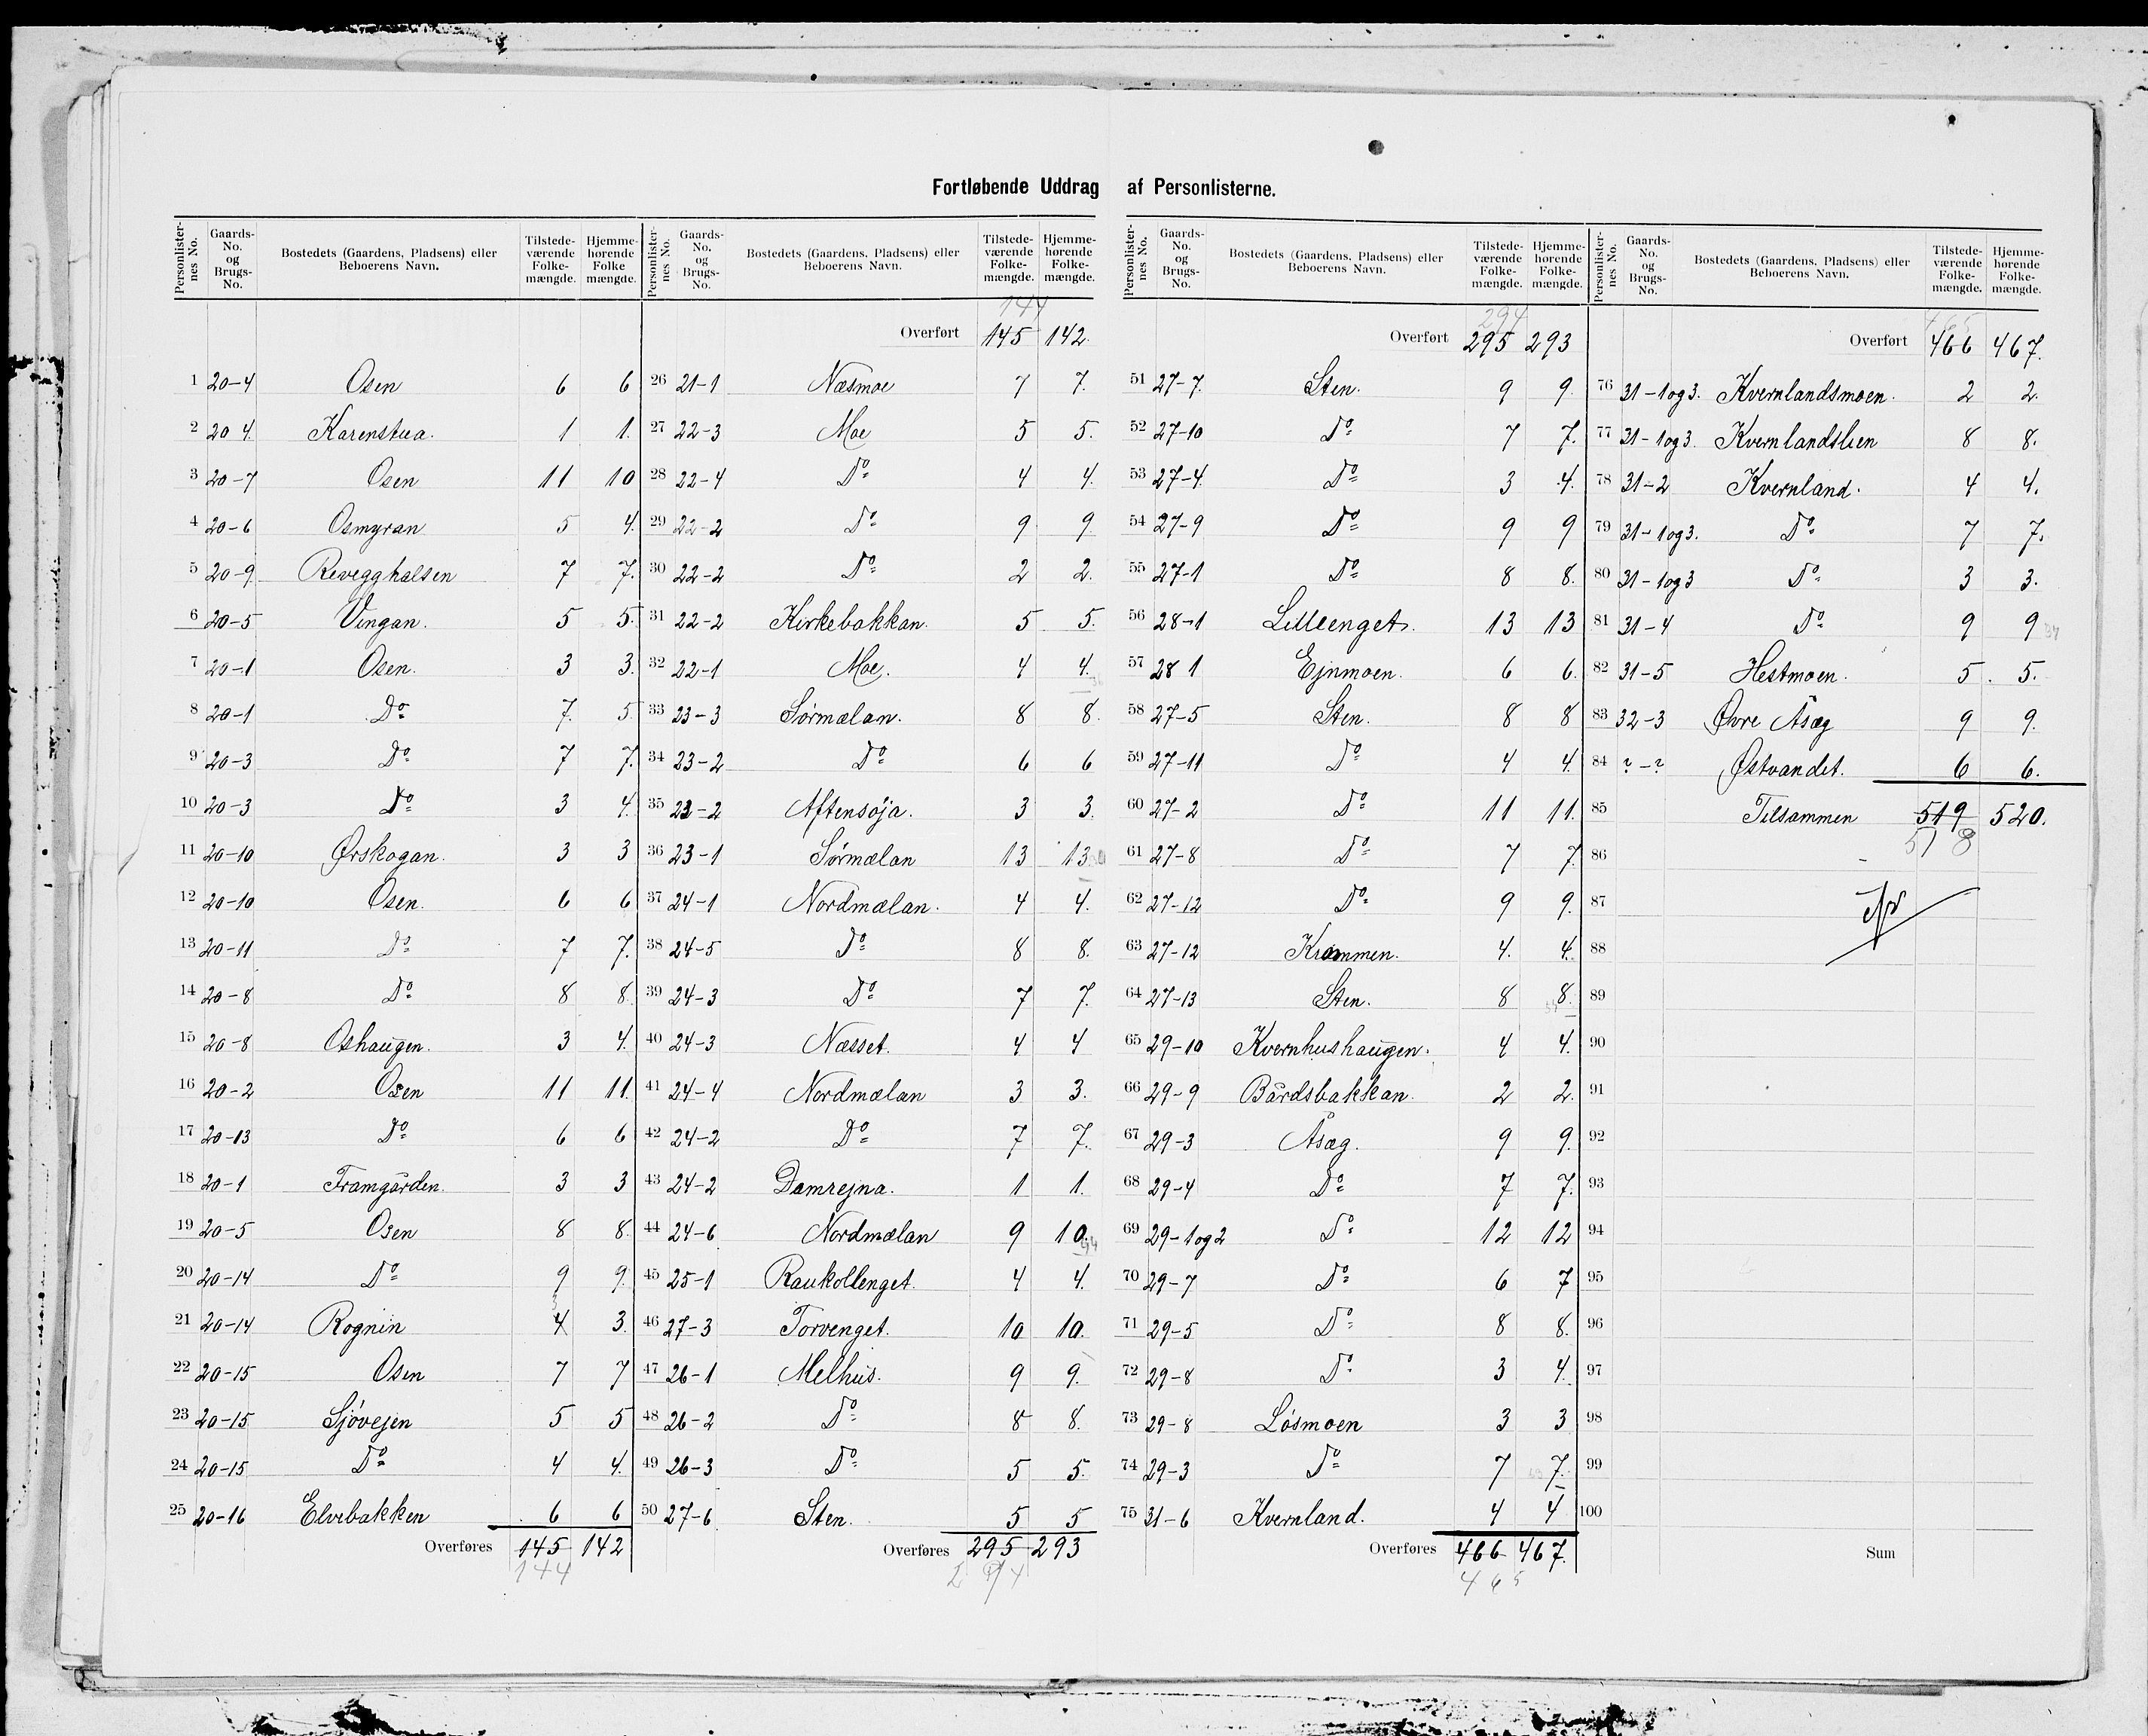 Fortløbende Uddrag af Personlisterne.
Personlisternes No. Gaards-No. og Brugs-No. Bostedets (Gaardens, Pladsens) eller Beboerens Navn. Tilstedeværende Folkemængde. Hjemmehørende Folkemængde.
1 20-4 Osen 6 6
2 20 4. Karenstua. 1 1.
3 20-7 Osen 11 10
4 20-6 Osmyran 5 4.
5 20-9 Revegghalsen 7 7.
6 20-5 Vingan. 5 5.
7 20-1 Osen. 3 3.
8 20-1 Do 7. 5.
9 20-3 Do 7 7.
10 20-3 Do 3 4.
11 20-10 Ørskogan. 3 3
12 20-10 Osen. 6 6
13 20-11 Do 7 7.
14 20-8 Do 8 8.
15 20-8 Oshaugen. 3 4.
16 20-2 Osen 11 11.
17 20-13 Do 6 6
18 20-1 Framgården. 3 3
19 20-5 Osen 8 8.
20 20-14 Do 9 9.
21 20-14 Rognin 4 3 3.
22 20-15 Osen 7 7
23 20-15 Sjøvejen 5 5
24 20-15 Do 4 4.
25 20-16 Elvebakken 6 6
Overføres 145 142
144
Personlisternes No. Gaards-No. og Brugs-No. Bostedets (Gaardens, Pladsens) eller Beboerens Navn. Tilstedeværende Folkemængde. Hjemmehørende Folkemængde.
144
Overført 145 142.
26 21-1 Næsmoe 7 7.
27 22-3 Moe 5 5.
28 22-4 Do 4 4.
29 22-2 Do 9 9.
30 22-2 Do 2 2.
31 22-2 Kirkebakkan. 5 5.
32 22-1 Moe. 4 4.
33 23-3 Sørmælan. 8 8.
34 23-2 Do 6 6
35 23-2 Aftensøja. 3 3.
36 23-1 Sørmælan 13 13
37 24-1 Nordmælan. 4 4.
38 24-5 Do 8 8.
39 24-3 Do 7 7.
40 24-3 Næsset. 4 4
41 24-4 Nordmælan 3 3.
42 24-2 Do 7 7.
43 24-2 Damrejna. 1 1.
44 24-6 Nordmælan 9 10.
45 25-1 Raukollenget. 4 4.
46 27-3 Torvenget. 10 10.
47 26-1 Melhus. 9 9.
48 26-2 Do 8 8.
49 26-3 Do 5 5.
50 27-6 Sten. 5 5
Overføres 295 293
294
Personlisternes No. Gaards-No. og Brugs-No. Bostedets (Gaardens, Pladsens) eller Beboerens Navn. Tilstedeværende Folkemængde. Hjemmehørende Folkemængde.
294
Overført 295 293
51 27-7. Sten. 9 9.
52 27-10 Do 7 7.
53 27-4. Do 3 4.
54 27-9 Do 9 9
55 27-1 Do 8 8.
56 28-1 Lilleenget. 13 13
57 28 1 Ejnmoen. 6 6.
58 27-5 Sten. 8 8
59 27-11 Do 4 4.
60 27-2 Do 11 11.
61 27-8 Do 7 7.
62 27-12 Do 9 9.
63 27-12 Krammen. 4. 4.
64 27-13 Sten. 8 8.
65 29-10 Kvernhushaugen. 4 4.
66 29-9 Bårdsbakkan. 2 2.
67 29-3 Åsæg. 9 9.
68 29-4 Do 7 7.
69 29-1og2 Do 12 12
70 29-7 Do 6 7
71 29-5 Do 8 8.
72 29-8 Do 3 4.
73 29-8 Løsmoen 3 3
74 29-3 Do 7 7.
75 31-6 Kvernland. 4 4
Overføres 466 467.
465
Personlisternes No. Gaards-No. og Brugs-No. Bostedets (Gaardens, Pladsens) eller Beboerens Navn. Tilstedeværende Folkemængde. Hjemmehørende Folkemængde.
465
Overført 466 467.
76 31-1og3. Kvernlandsmoen. 2 2.
77 31-1og3. Kvernlandslien 8 8.
78 31-2 Kvernland. 4 4.
79 31-1og3. Do 7 7.
80 31-1og3 Do 3 3.
81 31-4 Do 9 9
82 31-5 Hestmoen. 5. 5.
83 32-3 Øvre Åsæg 9 9.
84 ?-? Østvandet. 6 6.
85 Tilsammen 519 520.
518
86
87
88
89
90
91
92
93
94
95
96
97
98
99
100
Sum